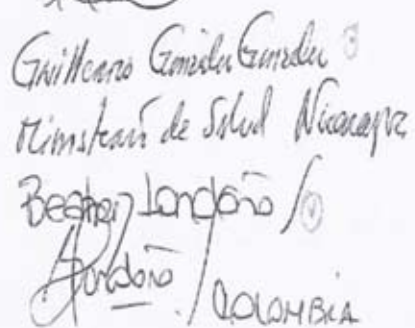 Guillermo González González
Ministerio de Salud Nicaragua
Beatriz Londoño /
Londoño / COLOMBIA